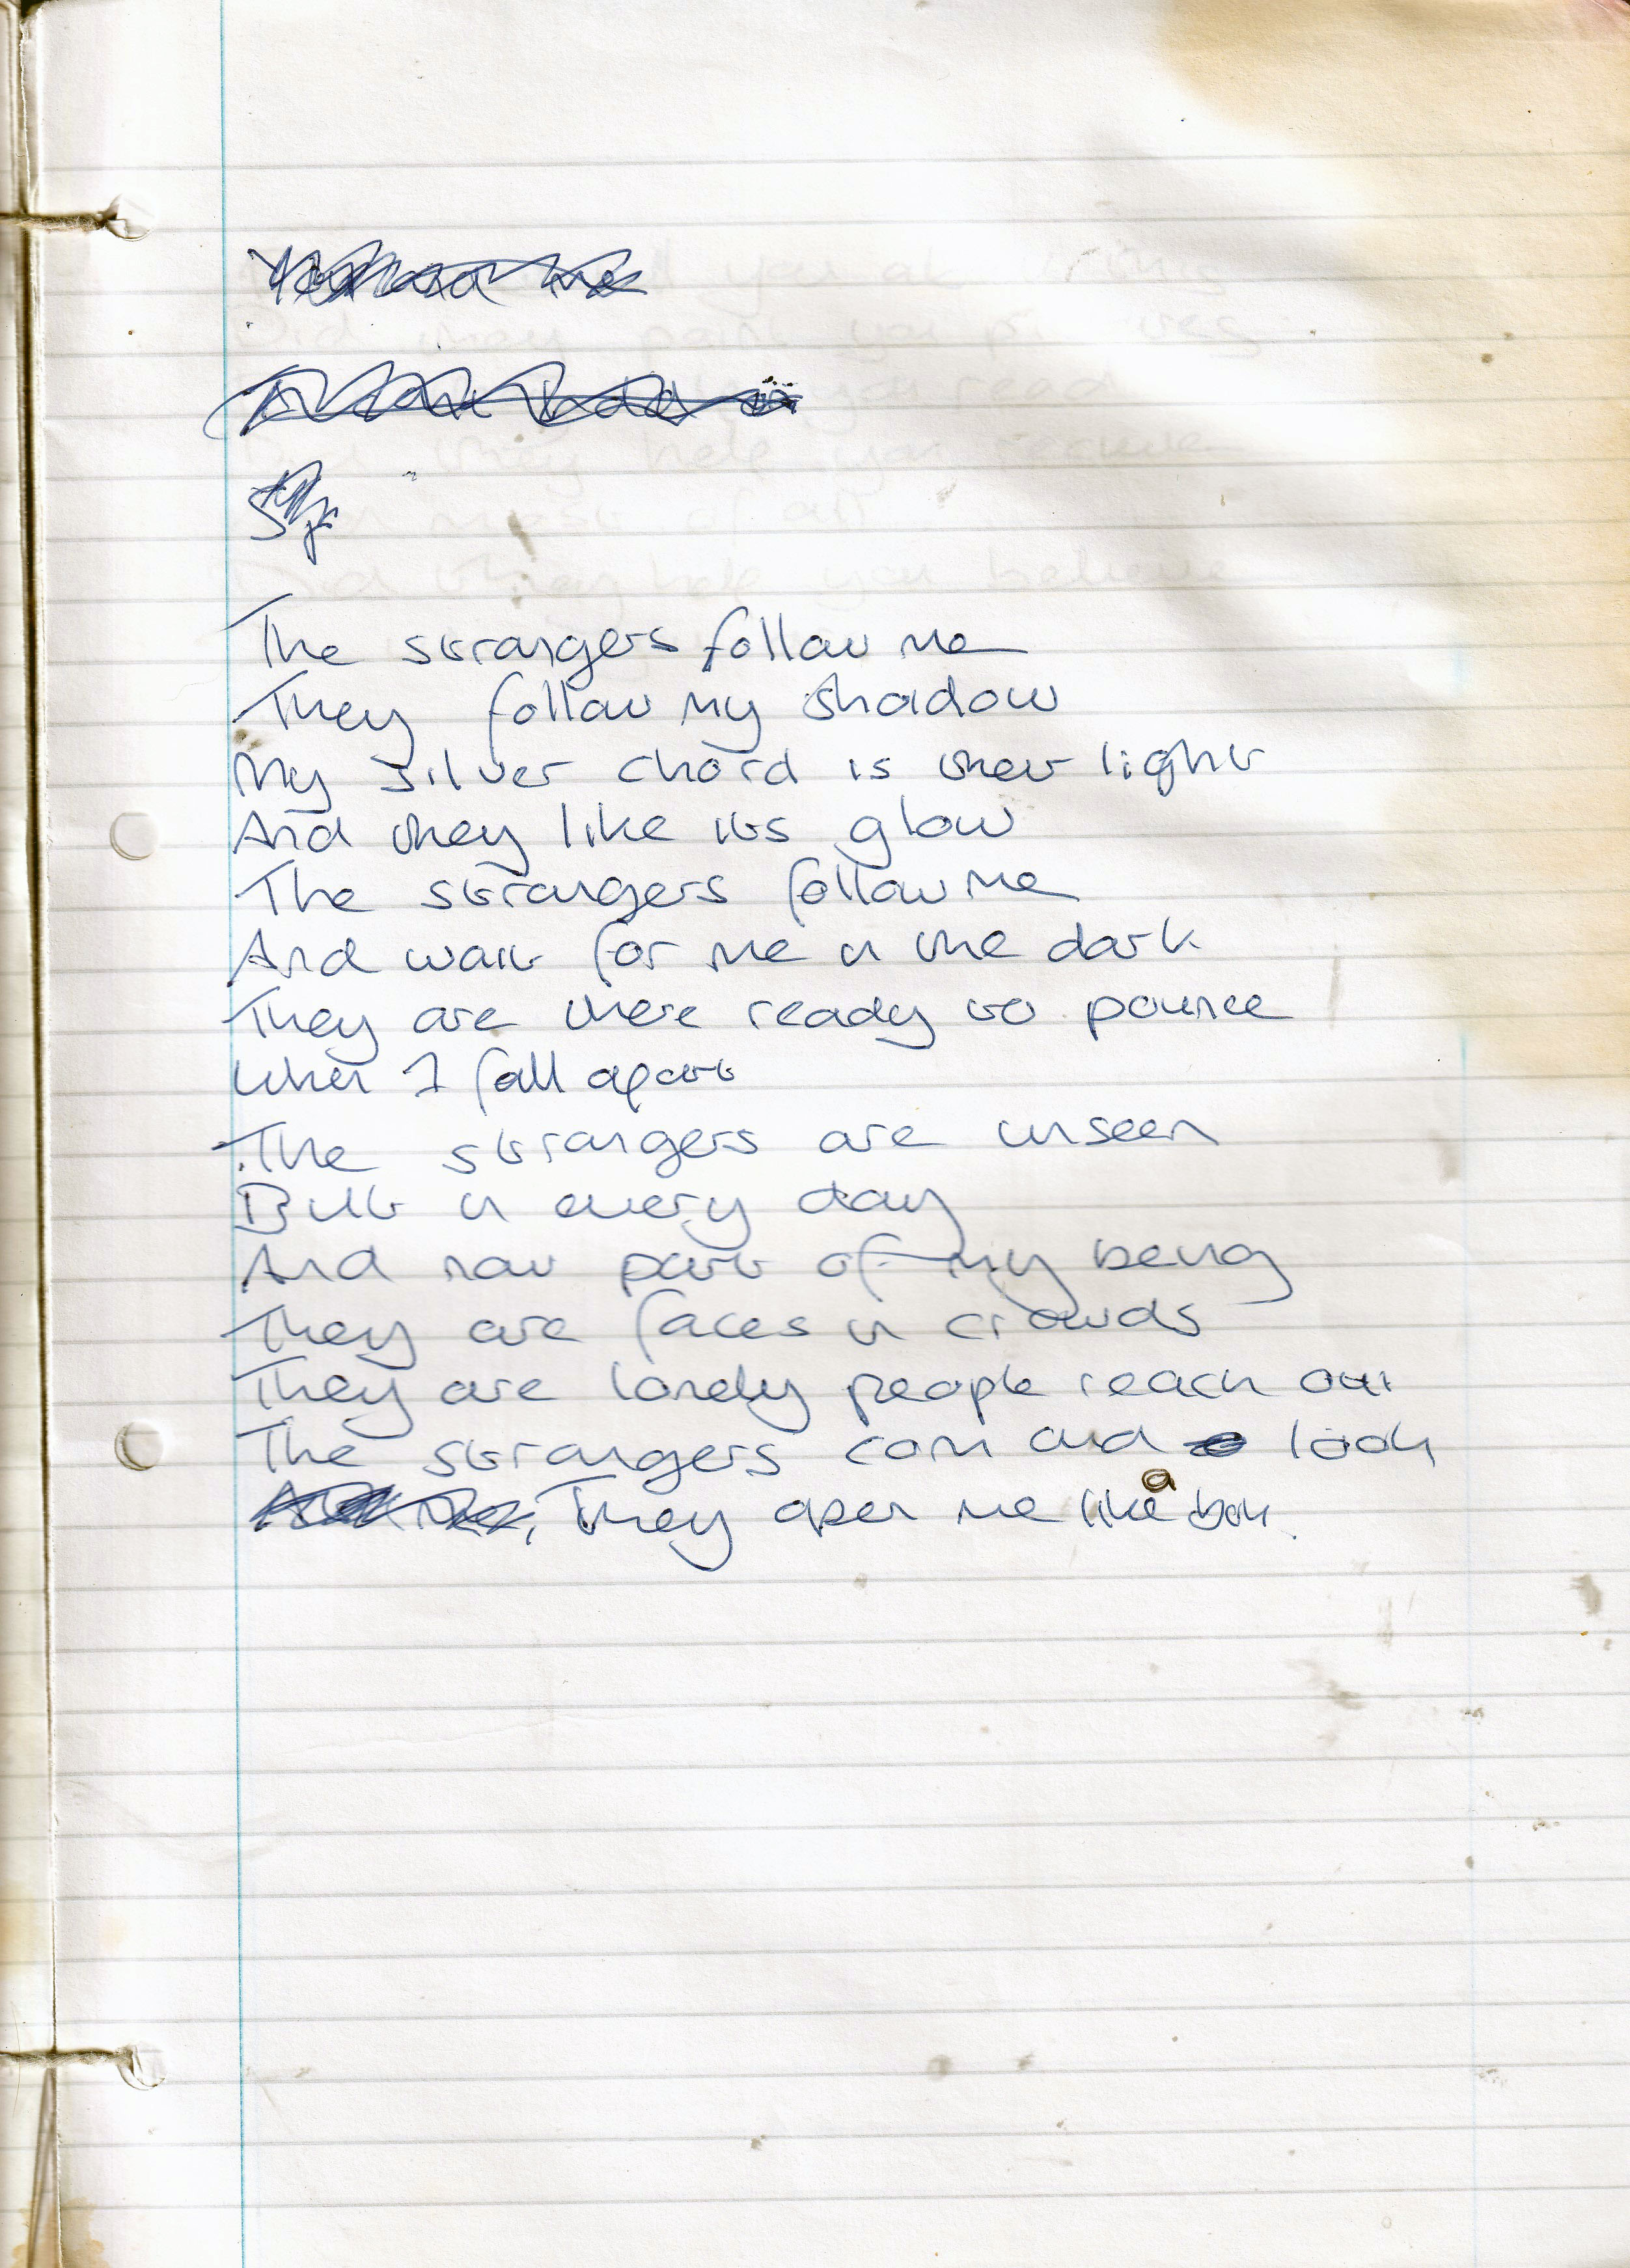 The strangers follow me
They follow my shadow
My silver chord is their light
And they like its glow
The strangers follow me
And wait for me in the dark
They are there ready to pounce
When I fall apart
The strangers are unseen
But in every day
And now part of my being
They are faces in crowds
They are lonely people reach out
The strangers com and look
They open me like a